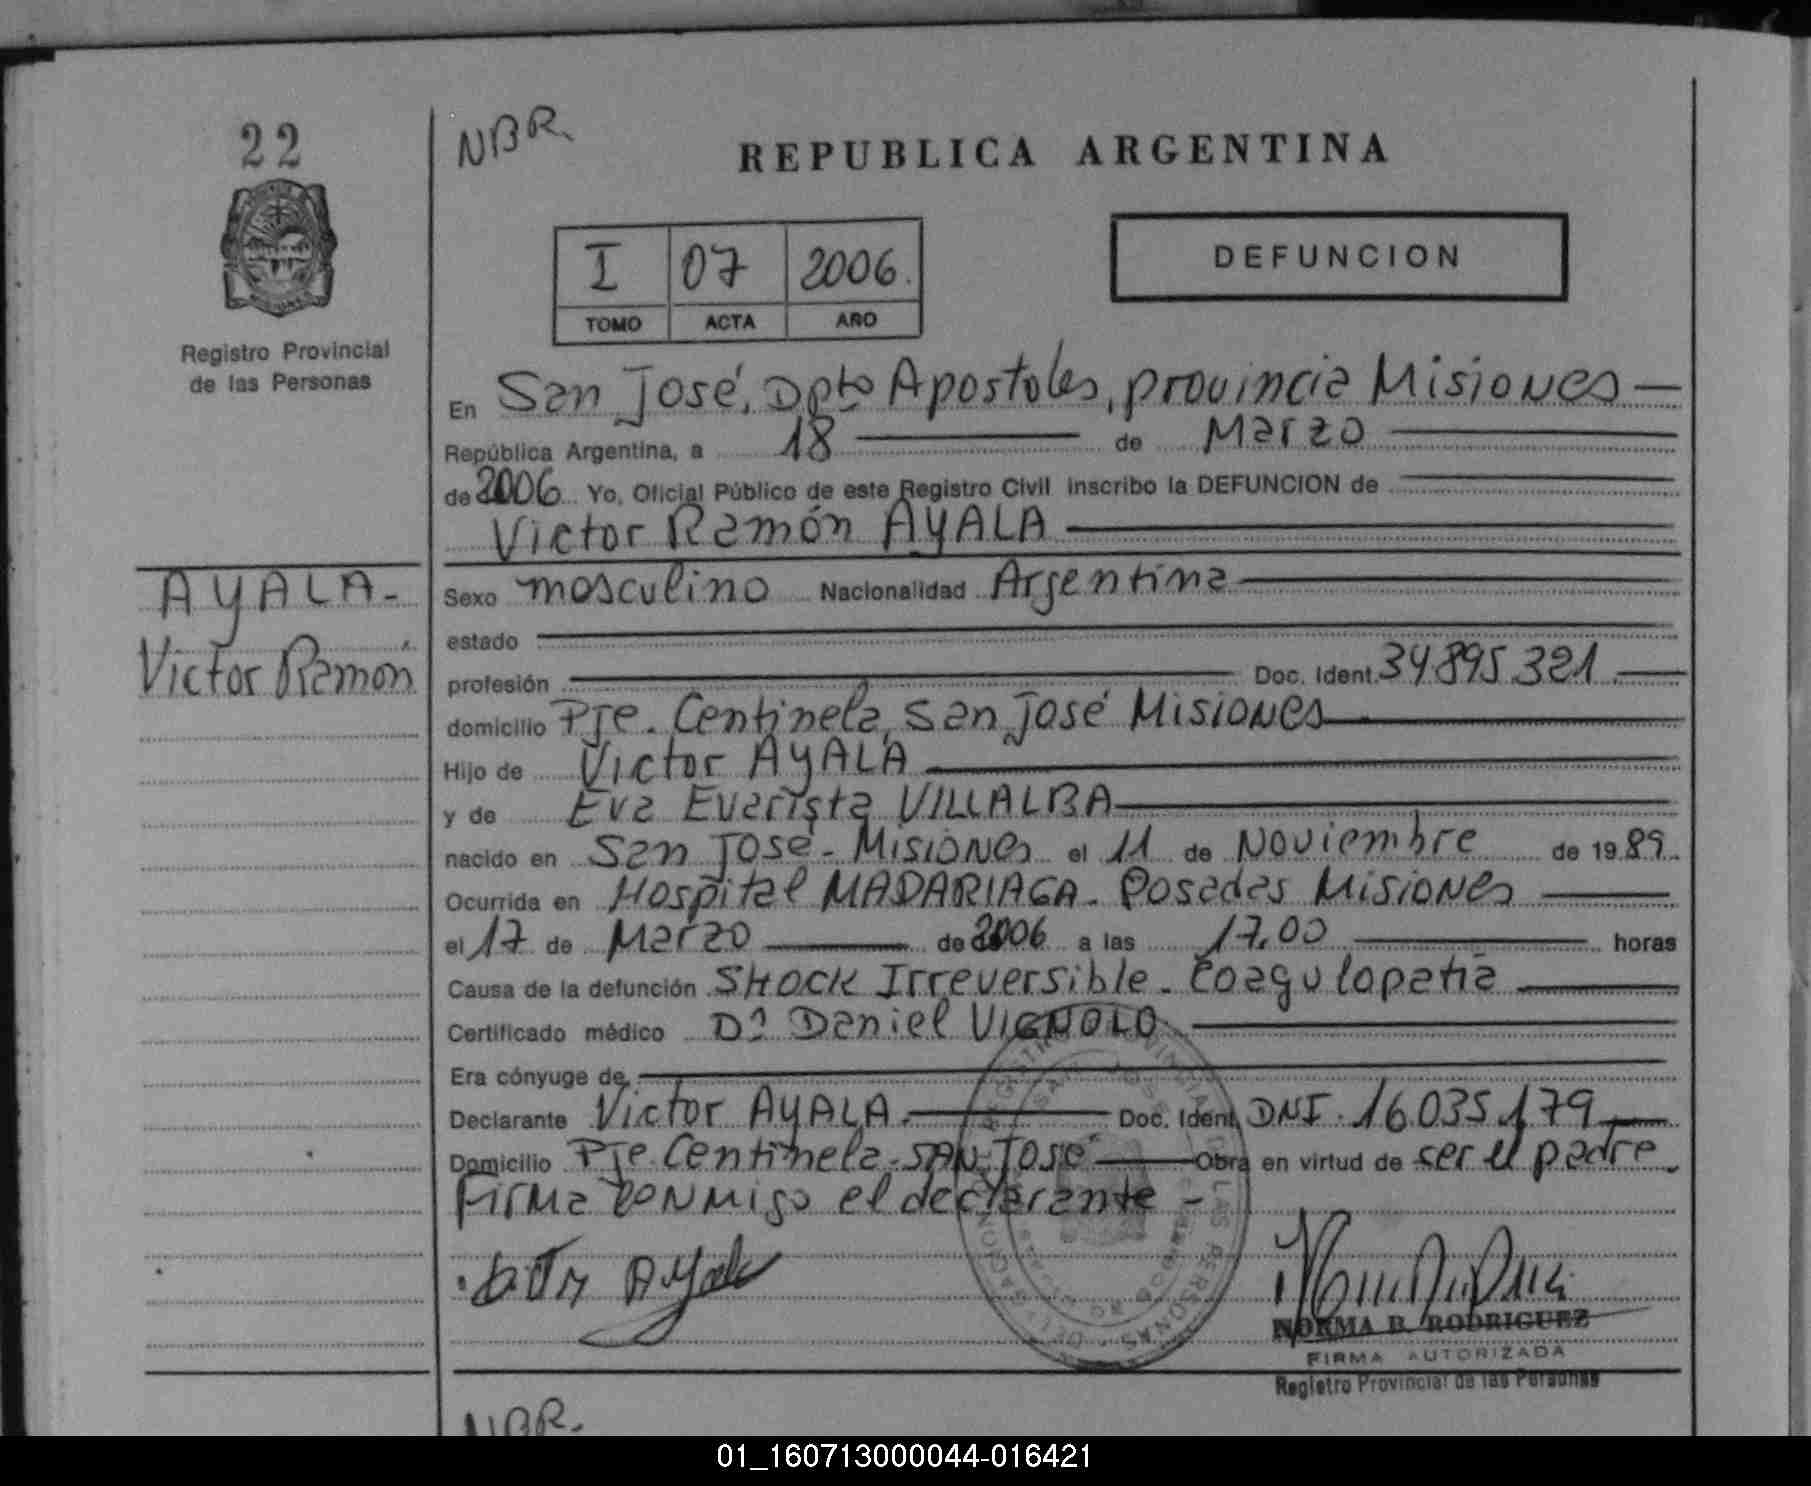 22
NBR.
REPUBLICA ARGENTINA
I 07 2006.
TOMO ACTA AÑO
DEFUNCION
Registro Provincial
de las Personas
En San José, Dpto Apostoles, provincia Misiones
República Argentina, a 18 de Marzo
de 2006 Yo, Oficial Público de este Registro Civil inscribo la DEFUNCION de
Victor Ramón AYALA
AYALA-
Victor Ramón
Sexo masculino Nacionalidad Argentina
estado
profesión Doc. Ident. 34.895.321
domicilio Pje. Centinela, San José Misiones
Hijo de Victor AYALA
y de Eva Evarista VILLALBA
nacido en San José - Misiones el 11 de Noviembre de 1989.
Ocurrida en Hospital MADARIAGA - Posadas Misiones
el 17 de Marzo de 2006 a las 17,00 horas
Causa de la defunción SHOCK Irreversible - Coagulopatia
Certificado médico Dr Daniel VIGNOLO
Era cónyuge de
Declarante Victor AYALA. Doc. Ident. DNI. 16.035.179
Domicilio Pje Centinela - SAN José Obra en virtud de ser el padre.
Firma conmigo el declarante -
Ayala
NORMA B. RODRIGUEZ
FIRMA AUTORIZADA
Registro Provincial de las Personas
NBR.
01_160713000044-016421